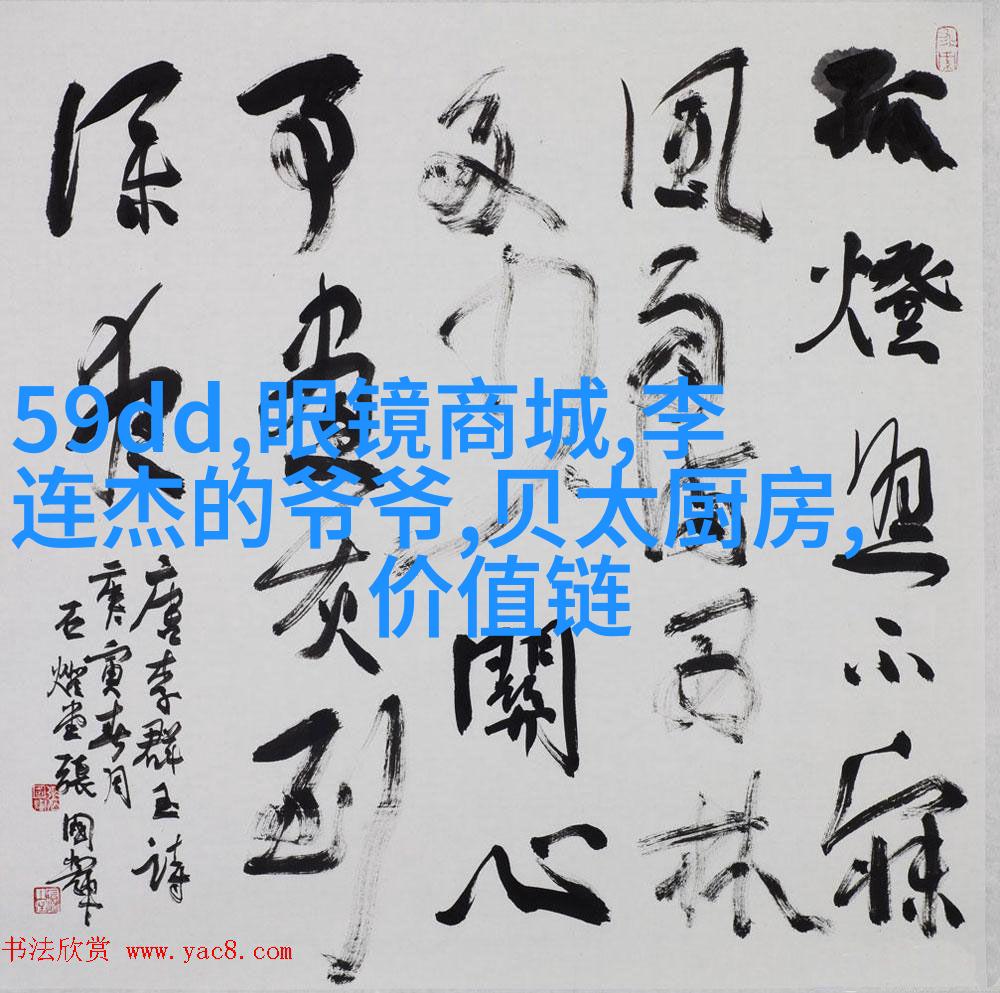 孤燈照不寐
風雨滿西林
多少關心
事書灰到
深夜
唐李群玉詩
庚寅春月
石燈堂張國輝
59dd,眼镜商城,李
连杰的爷爷,贝太厨房,
价值链
书法欣赏 www.yac8.com